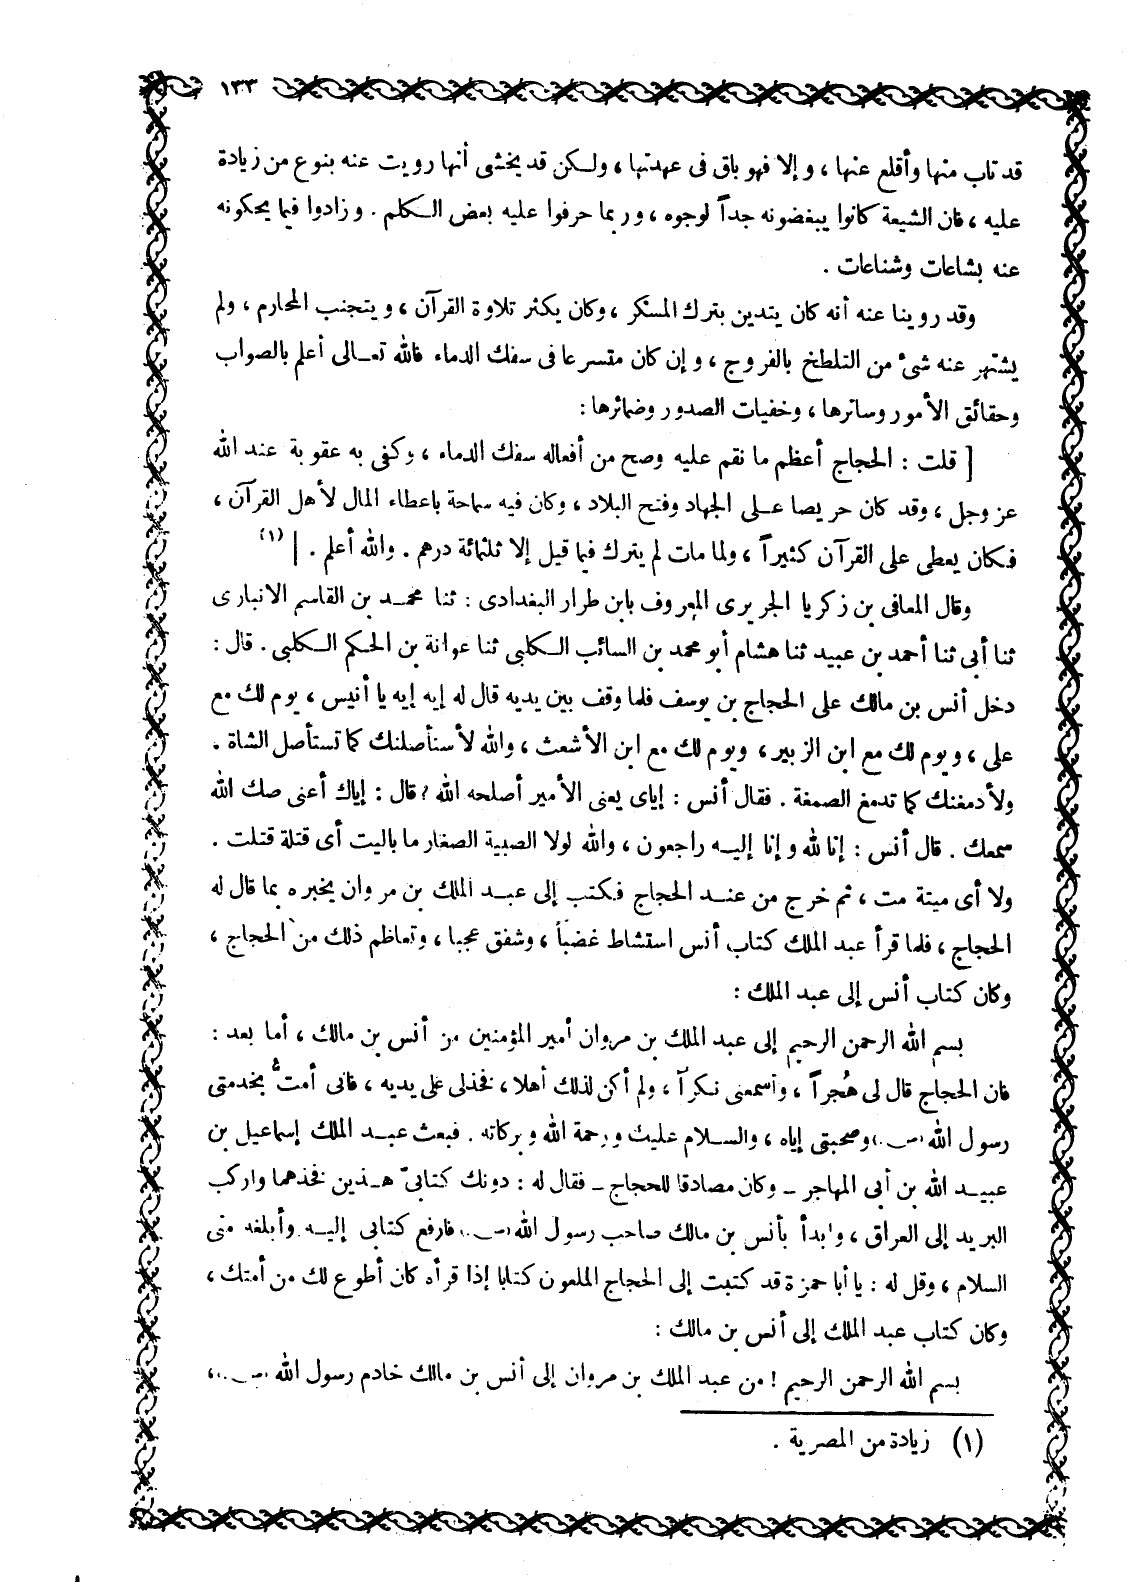 ١٣٣
قد تاب منها وأقلع عنها ، و إلا فهو باق فى عهدتها ، ولكن قد يخشى أنها رويت عنه بنوع من زيادة
عليه ، فان الشيعة كانوا يبغضونه جداً لوجوه ، وربما حرفوا عليه بعض الكلم . وزادوا فيما يحكونه
عنه بشاعات وشناعات .
وقد روينا عنه أنه كان يتدين بترك المسكر ، وكان يكثر تلاوة القرآن ، ويتجنب المحارم ، ولم
يشتهر عنه شىء من التلطخ بالفروج ، و إن كان متسرعا فى سفك الدماء فالله تعالى أعلم بالصواب
وحقائق الأمور وساترها ، وخفيات الصدور وضمائرها :
[ قلت : الحجاج أعظم ما نقم عليه وصح من أفعاله سفك الدماء ، وكفى به عقوبة عند الله
عز وجل ، وقد كان حريصا على الجهاد وفتح البلاد ، وكان فيه سماحة باعطاء المال لأهل القرآن ،
فكان يعطى على القرآن كثيراً ، ولما مات لم يترك فيما قيل إلا ثلثمائة درهم . والله أعلم . ] (١)
وقال المعافى بن زكريا الجريرى المعروف بابن طرار البغدادى : ثنا محمد بن القاسم الانبارى
ثنا أبى ثنا أحمد بن عبيد ثنا هشام أبو محمد بن السائب الكلبى ثنا عوانة بن الحكم الكلبى . قال :
دخل أنس بن مالك على الحجاج بن يوسف فلما وقف بين يديه قال له إيه إيه يا أنيس ، يوم لك مع
على ، ويوم لك مع ابن الزبير ، ويوم لك مع ابن الأشعث ، والله لأستأصلنك كما تستأصل الشاة .
ولأدمغنك كما تدمغ الصمغة . فقال أنس : إياى يعنى الأمير أصلحه الله ؟ قال : إياك أعنى صك الله
سمعك . قال أنس : إنا لله و إنا إليه راجعون ، والله لولا الصبية الصغار ما باليت أى قتلة قتلت .
ولا أى ميتة مت ، ثم خرج من عند الحجاج فكتب إلى عبد الملك بن مروان يخبره بما قال له
الحجاج ، فلما قرأ عبد الملك كتاب أنس استشاط غضباً ، وشفق عجبا ، وتعاظم ذلك من الحجاج ،
وكان كتاب أنس إلى عبد الملك :
بسم الله الرحمن الرحيم إلى عبد الملك بن مروان أمير المؤمنين من أنس بن مالك ، أما بعد :
فان الحجاج قال لى هُجراً ، وأسمعنى نكراً ، ولم أكن لذلك أهلا ، فخذلى على يديه ، فانى أمت بخدمتى
رسول الله (ص) وصحبتى إياه ، والسلام عليك ورحمة الله وبركاته . فبعث عبد الملك إسماعيل بن
عبيد الله بن أبى المهاجر - وكان مصادقا للحجاج - فقال له : دونك كتابىّ هذين فخذهما واركب
البريد إلى العراق ، وابدأ بأنس بن مالك صاحب رسول الله (ص) فارفع كتابى إليه وأبلغه منى
السلام ، وقل له : يا أبا حمزة قد كتبت إلى الحجاج الملعون كتابا إذا قرأه كان أطوع لك من أمتك ،
وكان كتاب عبد الملك إلى أنس بن مالك :
بسم الله الرحمن الرحيم ! من عبد الملك بن مروان إلى أنس بن مالك خادم رسول الله (ص) ،
(١) زيادة من المصرية .